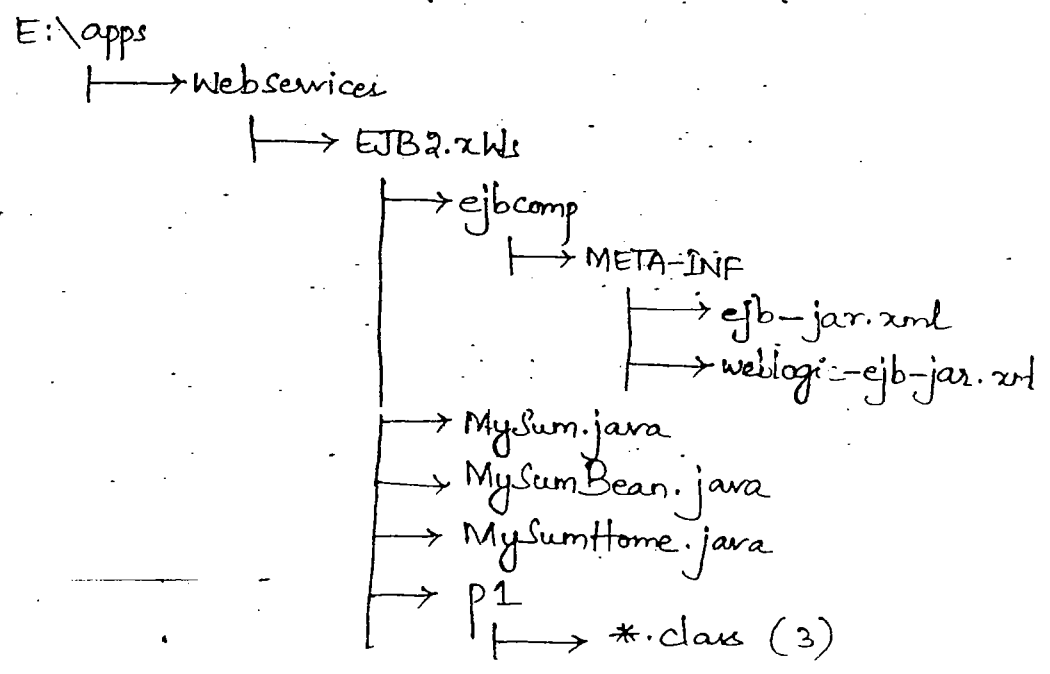 E:\apps
Webservices
EJB2.xWs
ejbcomp
META-INF
ejb-jar.xml
weblogic-ejb-jar.xml
MySum.java
MySumBean.java
MySumHome.java
p1
*.class (3)